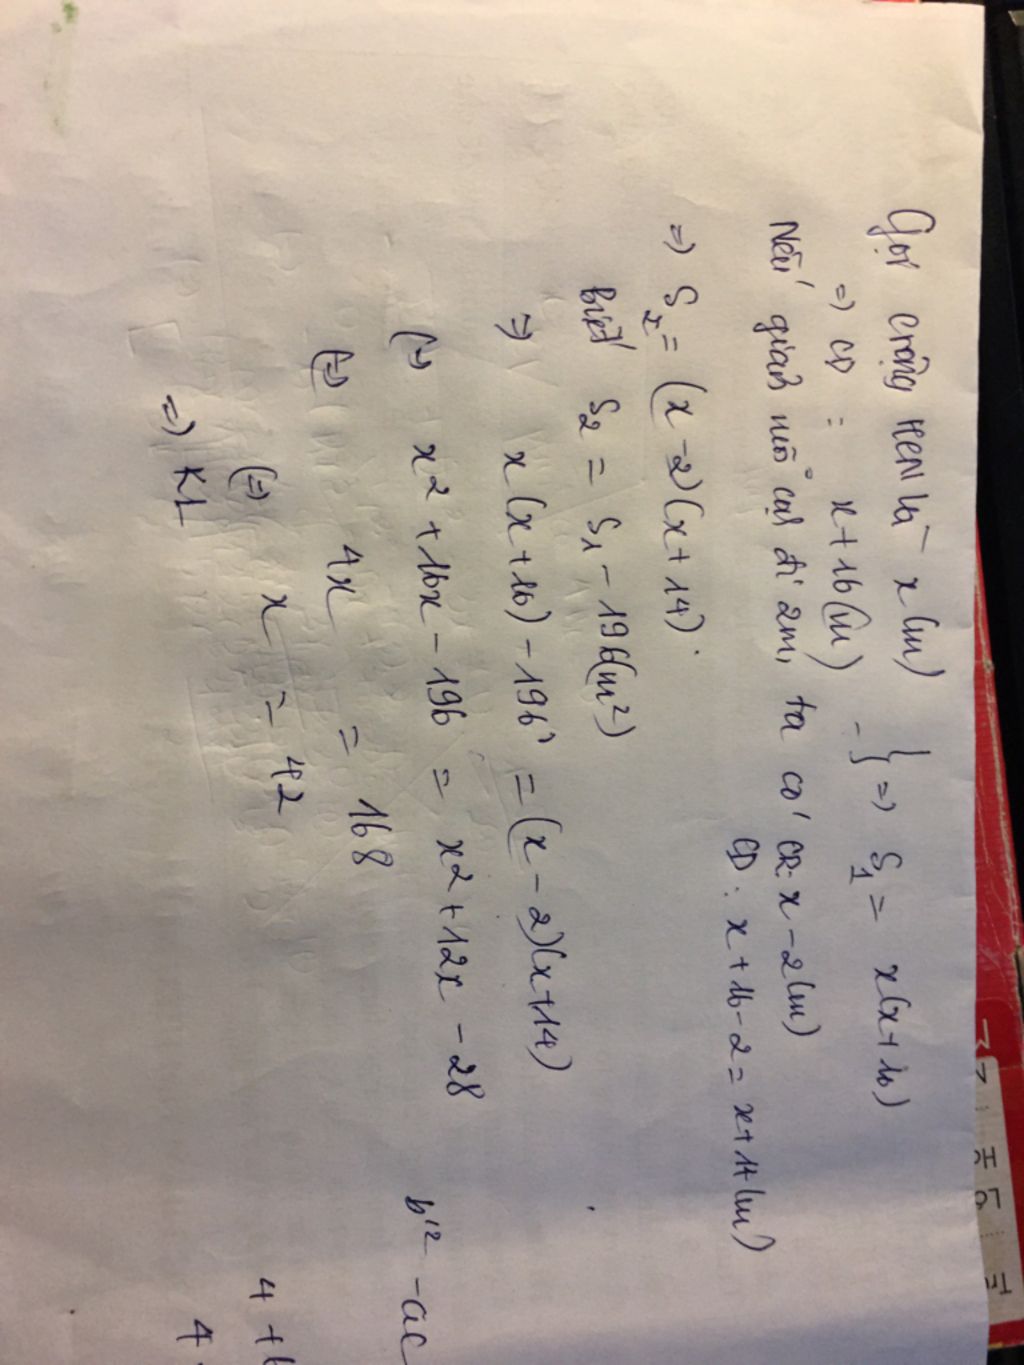 Gọi crộng HCN là x (m)
⇒ CD : x+16(m) } ⇒ S₁ = x(x+16)
Nếu giảm mỗi cạh đi 2m, ta có CR: x-2(m)
CD: x+16-2 = x+14(m)
⇒ S₂ = (x-2)(x+14).
biết S₂ = S₁ - 196(m²)
⇒ x(x+16) - 196 = (x-2)(x+14)
(=) x² + 16x - 196 = x² + 12x - 28
(=) 4x = 168
(=) x = 42
⇒ KL
b'² - ac
4 +
4
Lô